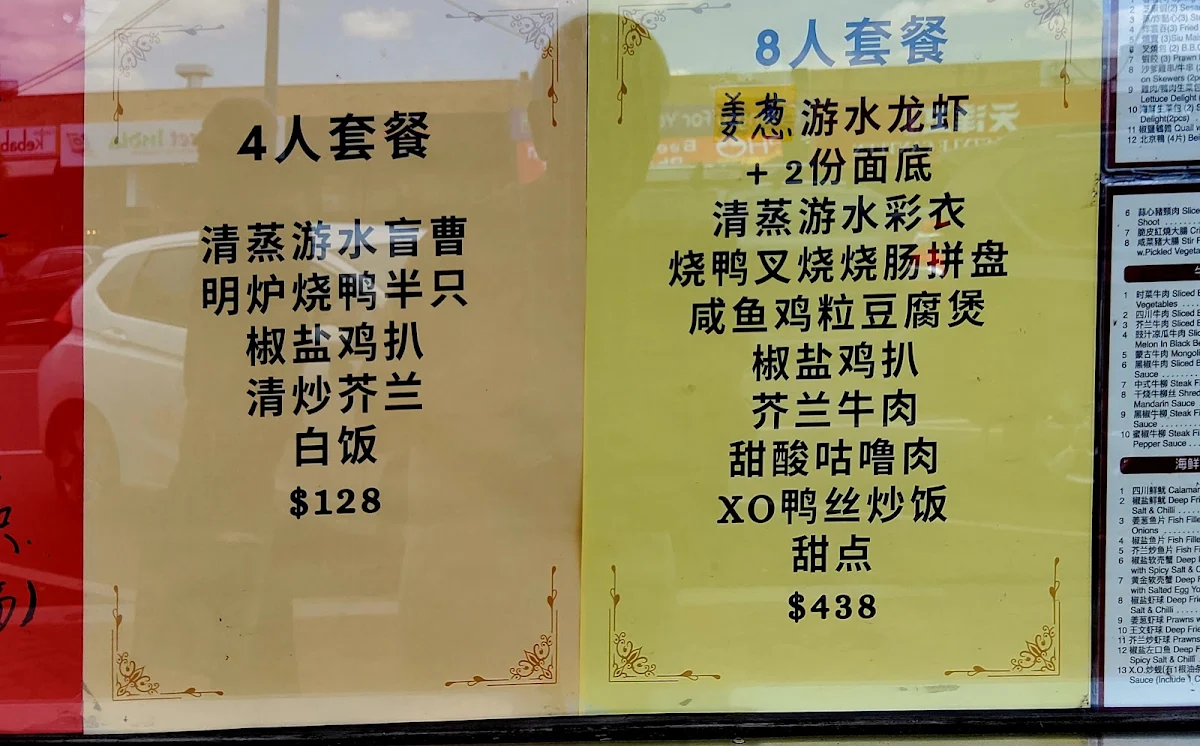 4人套餐
清蒸游水盲曹
明炉烧鸭半只
椒盐鸡扒
清炒芥兰
白饭
$128
8人套餐
姜葱游水龙虾
+ 2份面底
清蒸游水彩衣
烧鸭叉烧烧肠拼盘
咸鱼鸡粒豆腐煲
椒盐鸡扒
芥兰牛肉
甜酸咕噜肉
XO鸭丝炒饭
甜点
$438
on Skewers (2p
Lettuce Delight
Delight(2pcs)
11 椒鹽鵪鶉 Quail
12 北京鴨 (4片) Bei
6 蒜心豬頸肉 Slice
Shoot
7 脆皮紅燒大腸 Cri
8 咸菜豬大腸 Stir F
w.Pickled Vegeta
1 时菜牛肉 Sliced B
Vegetables
2 四川牛肉 Sliced B
3 芥兰牛肉 Sliced B
4 豉汁凉瓜牛肉 Slic
Melon In Black Be
5 蒙古牛肉 Mongol
6 黑椒牛肉 Sliced B
Sauce
7 中式牛柳 Steak F
8 干烧牛柳丝 Shred
Mandarin Sauce
9 黑椒牛柳 Steak Fi
Sauce
10 蜜椒牛柳 Steak F
Pepper Sauce
海鲜
1 四川鲜魷 Calamar
2 椒盐鲜魷 Deep Fri
Salt & Chilli
3 姜葱鱼片 Fish Fille
Onions
4 椒盐鱼片 Fish Fille
5 芥兰炒鱼片 Fish F
6 椒盐软壳蟹 Deep F
with Spicy Salt & C
7 黄金软壳蟹 Deep F
with Salted Egg Yo
8 椒盐虾球 Deep Frie
Salt & Chilli
9 姜葱虾球 Prawns w
10 王文虾球 Deep Frie
11 芥兰炒虾球 Prawns
12 椒盐左口鱼 Deep F
Spicy Salt & Chilli
13 X.O.炒蚬(有1根油条
Sauce (Include 1 C